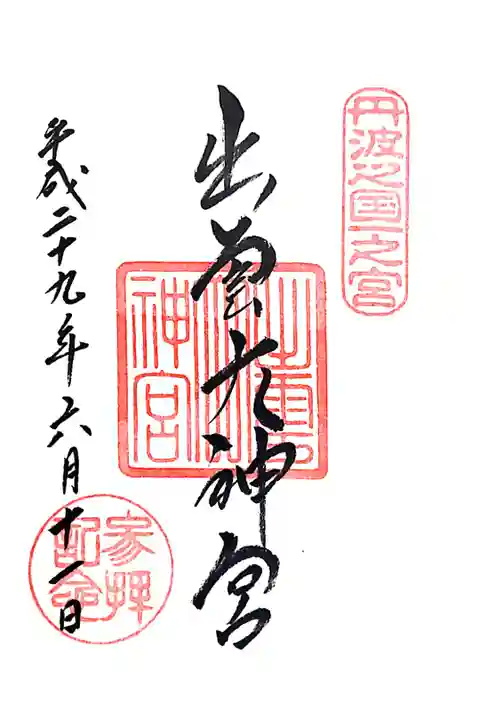 丹波之国一之宮
出雲大神宮
出雲大神宮
参拝
記念
平成二十九年六月十一日